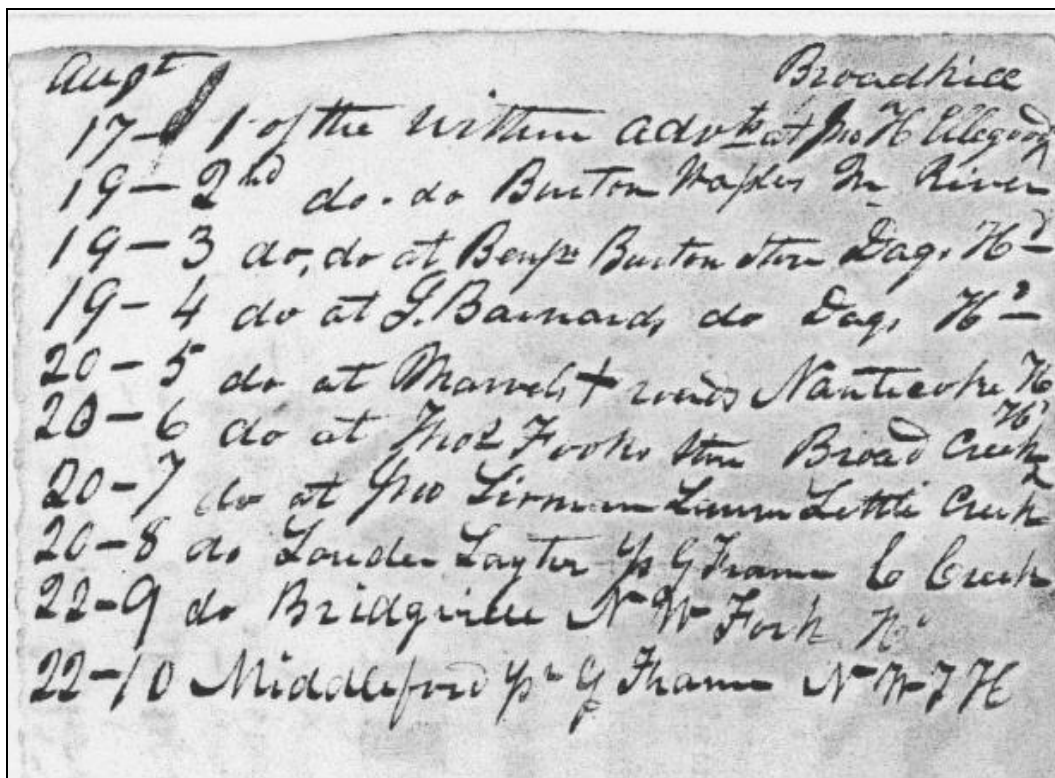 Augt Broadkill
17 - 1 of the within advts at Jno H Ellegood
19 - 2nd do. do Burton Waples In River
19 - 3 do, do at Benjn Burton store Dag. Hd
19 - 4 do at J. Barnards do Dag. Hd
20 - 5 do at Marvels + roads Nanticoke H
20 - 6 do at Thos Fooks store Broad Creek Hd
20 - 7 do at Jno Little Creek
20 - 8 do Louder Layton pr G Frame C Creek
22 - 9 do Bridgville N W Fork Hd
22 - 10 Middleford pr G Frame N W F H